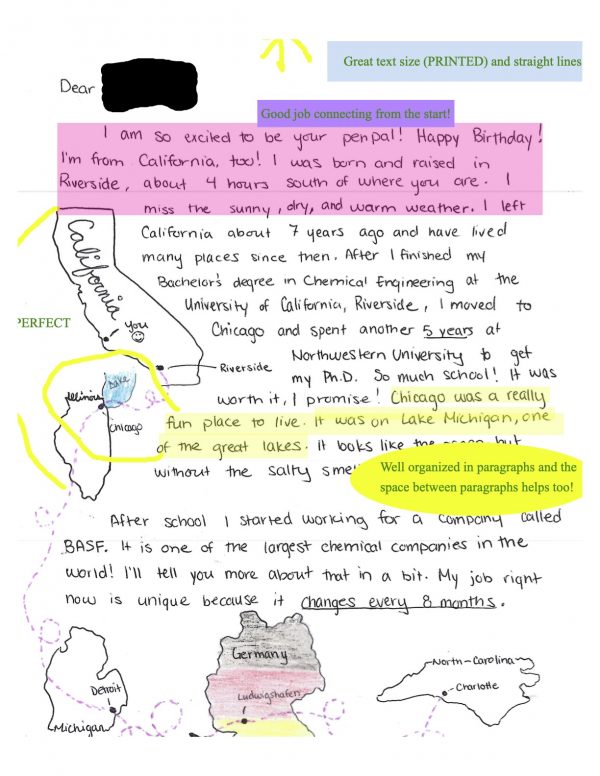 Great text size (PRINTED) and straight lines
Dear
Good job connecting from the start!
I am so excited to be your penpal! Happy Birthday!
I'm from California, too! I was born and raised in
Riverside, about 4 hours south of where you are. I
miss the sunny, dry, and warm weather. I left
California about 7 years ago and have lived
many places since then. After I finished my
Bachelor's degree in Chemical Engineering at the
University of California, Riverside, I moved to
Chicago and spent another 5 years at
Northwestern University to get
my Ph.D. So much school! It was
worth it, I promise! Chicago was a really
fun place to live. It was on Lake Michigan, one
of the great lakes. It looks like the ocean but
without the salty
California
You
PERFECT
Riverside
Lake
Illinois
Chicago
Well organized in paragraphs and the
space between paragraphs helps too!
After school I started working for a company called
BASF. It is one of the largest chemical companies in the
world! I'll tell you more about that in a bit. My job right
now is unique because it changes every 8 months.
Germany
Ludwigshafen
Detroit
Michigan
North-Carolina
Charlotte